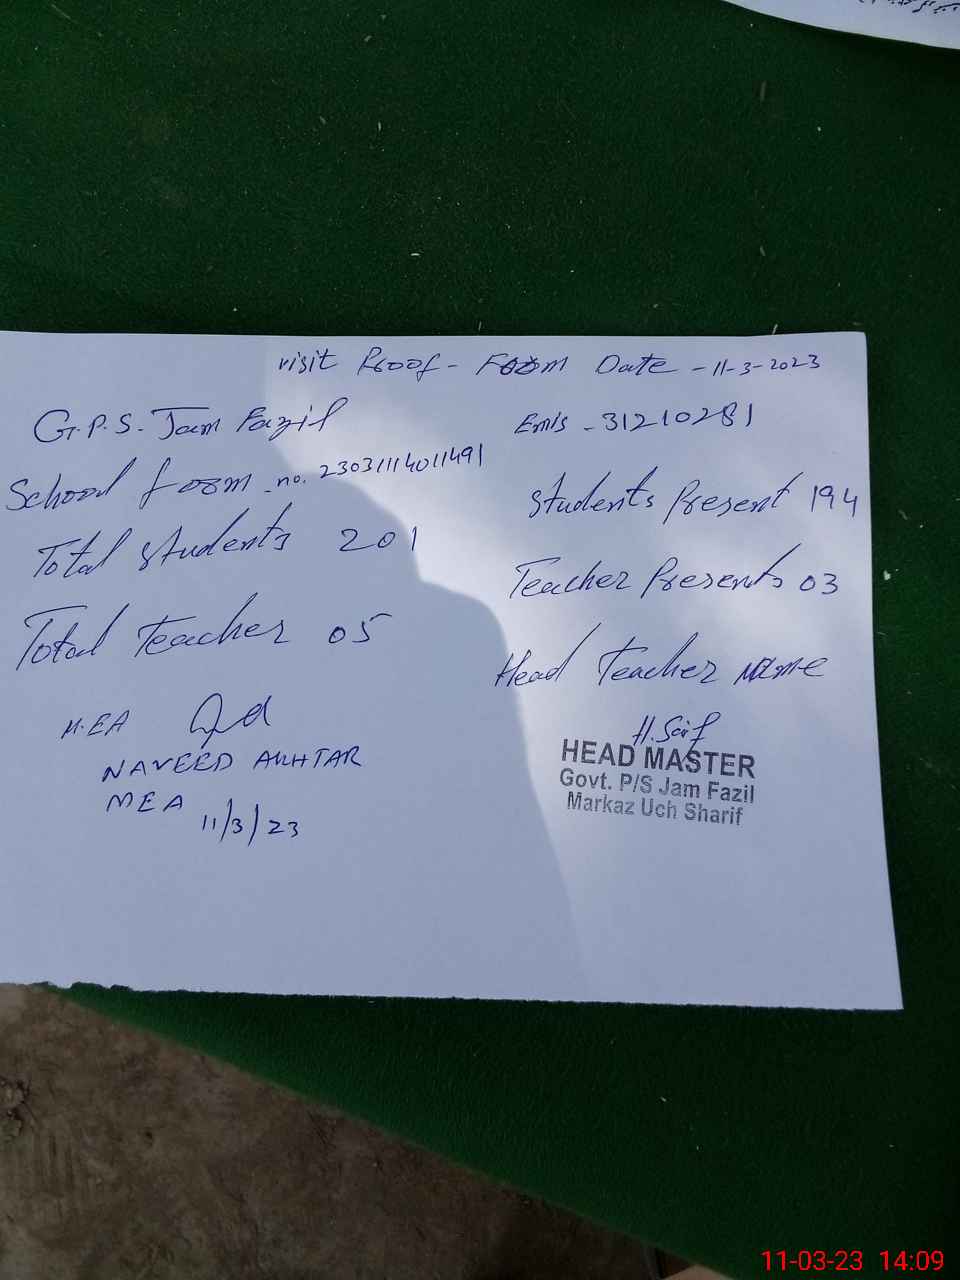 visit Proof - Form Date - 11-3-2023
G.P.S. Jam Fazil
Emis - 31210281
School form no. 23031114011491
Students Present 194
Total students 201
Teacher Presents 03
Total teacher 05
Head teacher Name
M.EA
H.Saif
NAVEED AKHTAR
MEA
11/3/23
HEAD MASTER
Govt. P/S Jam Fazil
Markaz Uch Sharif
11-03-23 14:09